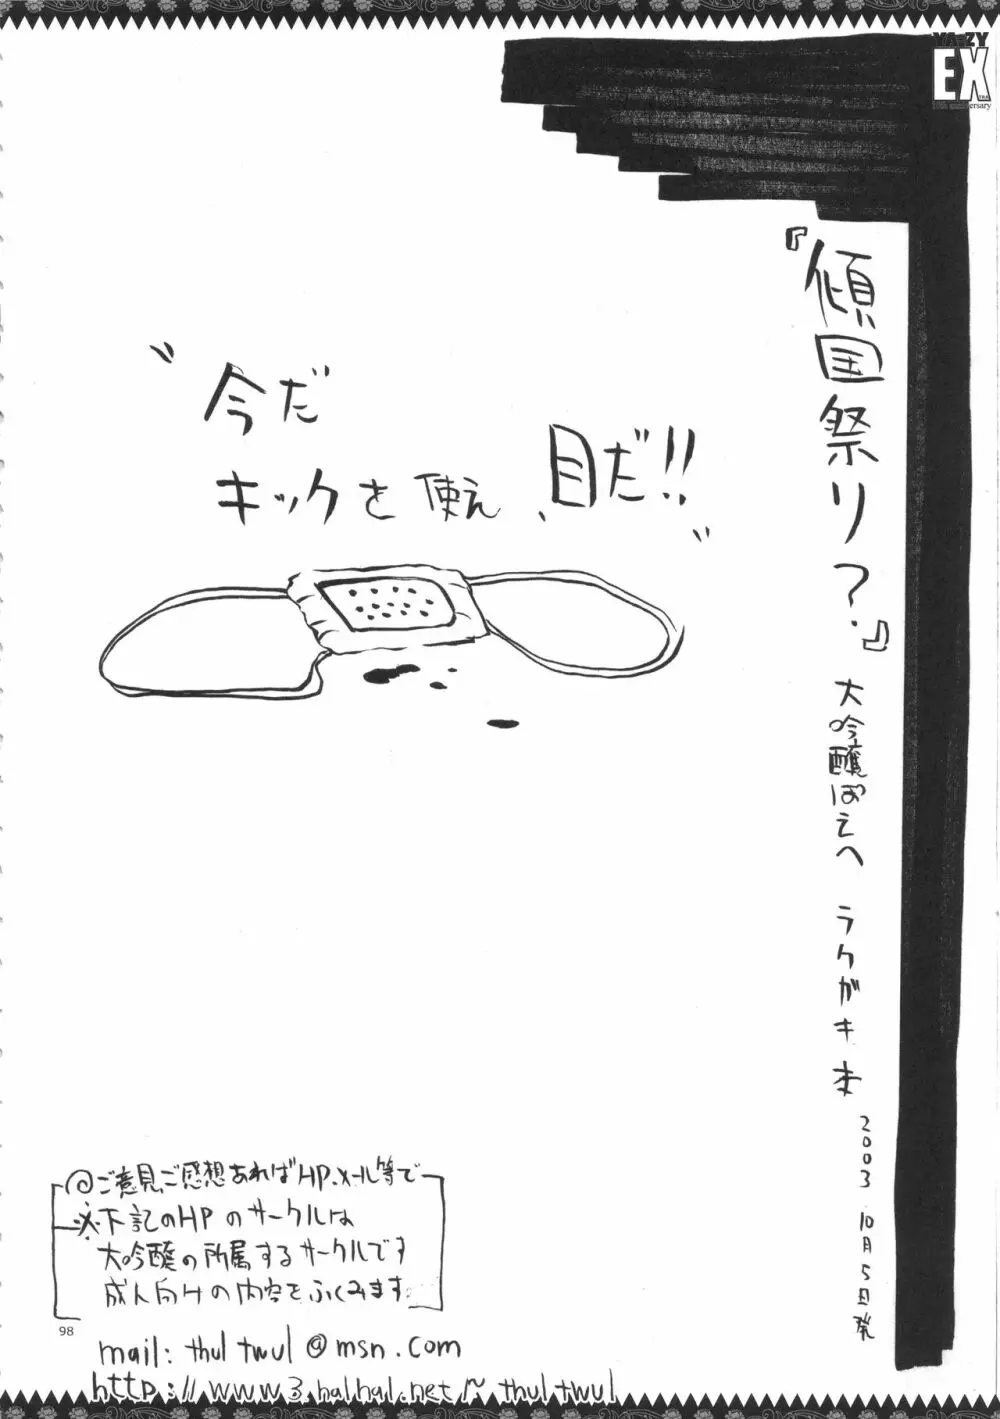 YA-ZY
EX
『傾国祭り？』
大吟醸ばえへ ラクガキ本
2003 10月5日発
〝今だ
キックを使え、目だ!!〟
@ご意見、ご感想あればHP、メール等で
※下記のHPのサークルは
大吟醸の所属するサークルです
成人向けの内容をふくみます。
98
mail: thul twul @ msn.com
http://www3.halhal.net/~thul twul